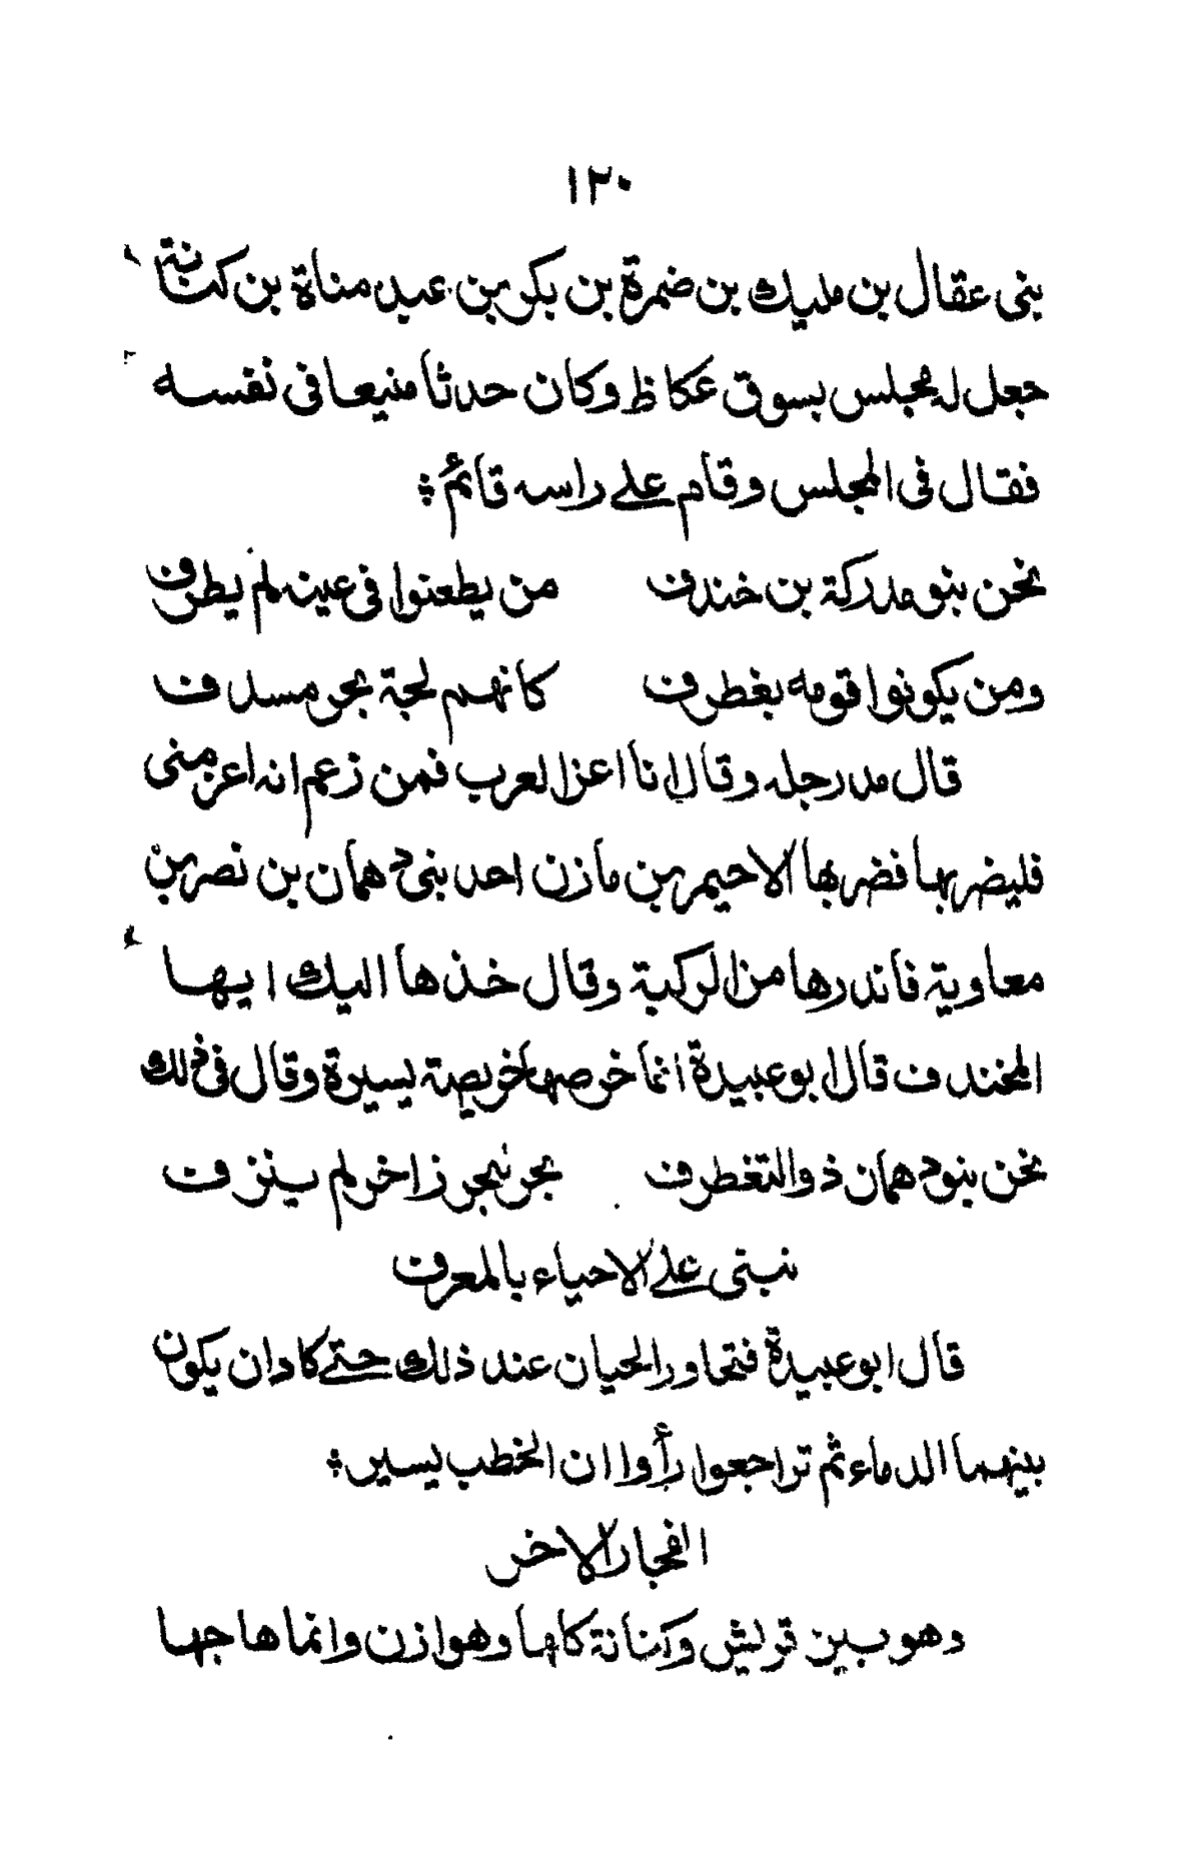 ١٢٠
بنى عقال بن مليك بن ضمرة بن بكر بن عبد مناة بن كنانة
جعل له مجلس بسوق عكاظ وكان حدثا منيعا فى نفسه
فقال فى المجلس وقام علے راسه قائم
نحن بنو مدركة بن خندف من يطعنوا فى عينه لم يطرف
ومن يكونوا قومه بغطرف كانهم لجة بحر مسدف
قال مد رجله وقال انا اعز العرب فمن زعم انه اعز منى
فليضربها فضربها الاحيمر بن مازن احد بنى دهمان بن نصر بن
معاوية فاندرها من الركبة وقال خذها اليك ايها
المخندف قال ابو عبيدة انما خرصها خريصة يسيرة وقال فى ذلك
نحن بنو دهمان ذو التغطرف بحر لبحر زاخر لم ينزف
نبتى علے الاحياء بالمعرف
قال ابو عبيدة فتحاور الحيان عند ذلك حتے كاد ان يكون
بينهما الدماء ثم تراجعوا رأوا ان الخطب يسير
الفجار الاخر
وهو بين قريش وكنانة كلها وهوازن وانما هاجها